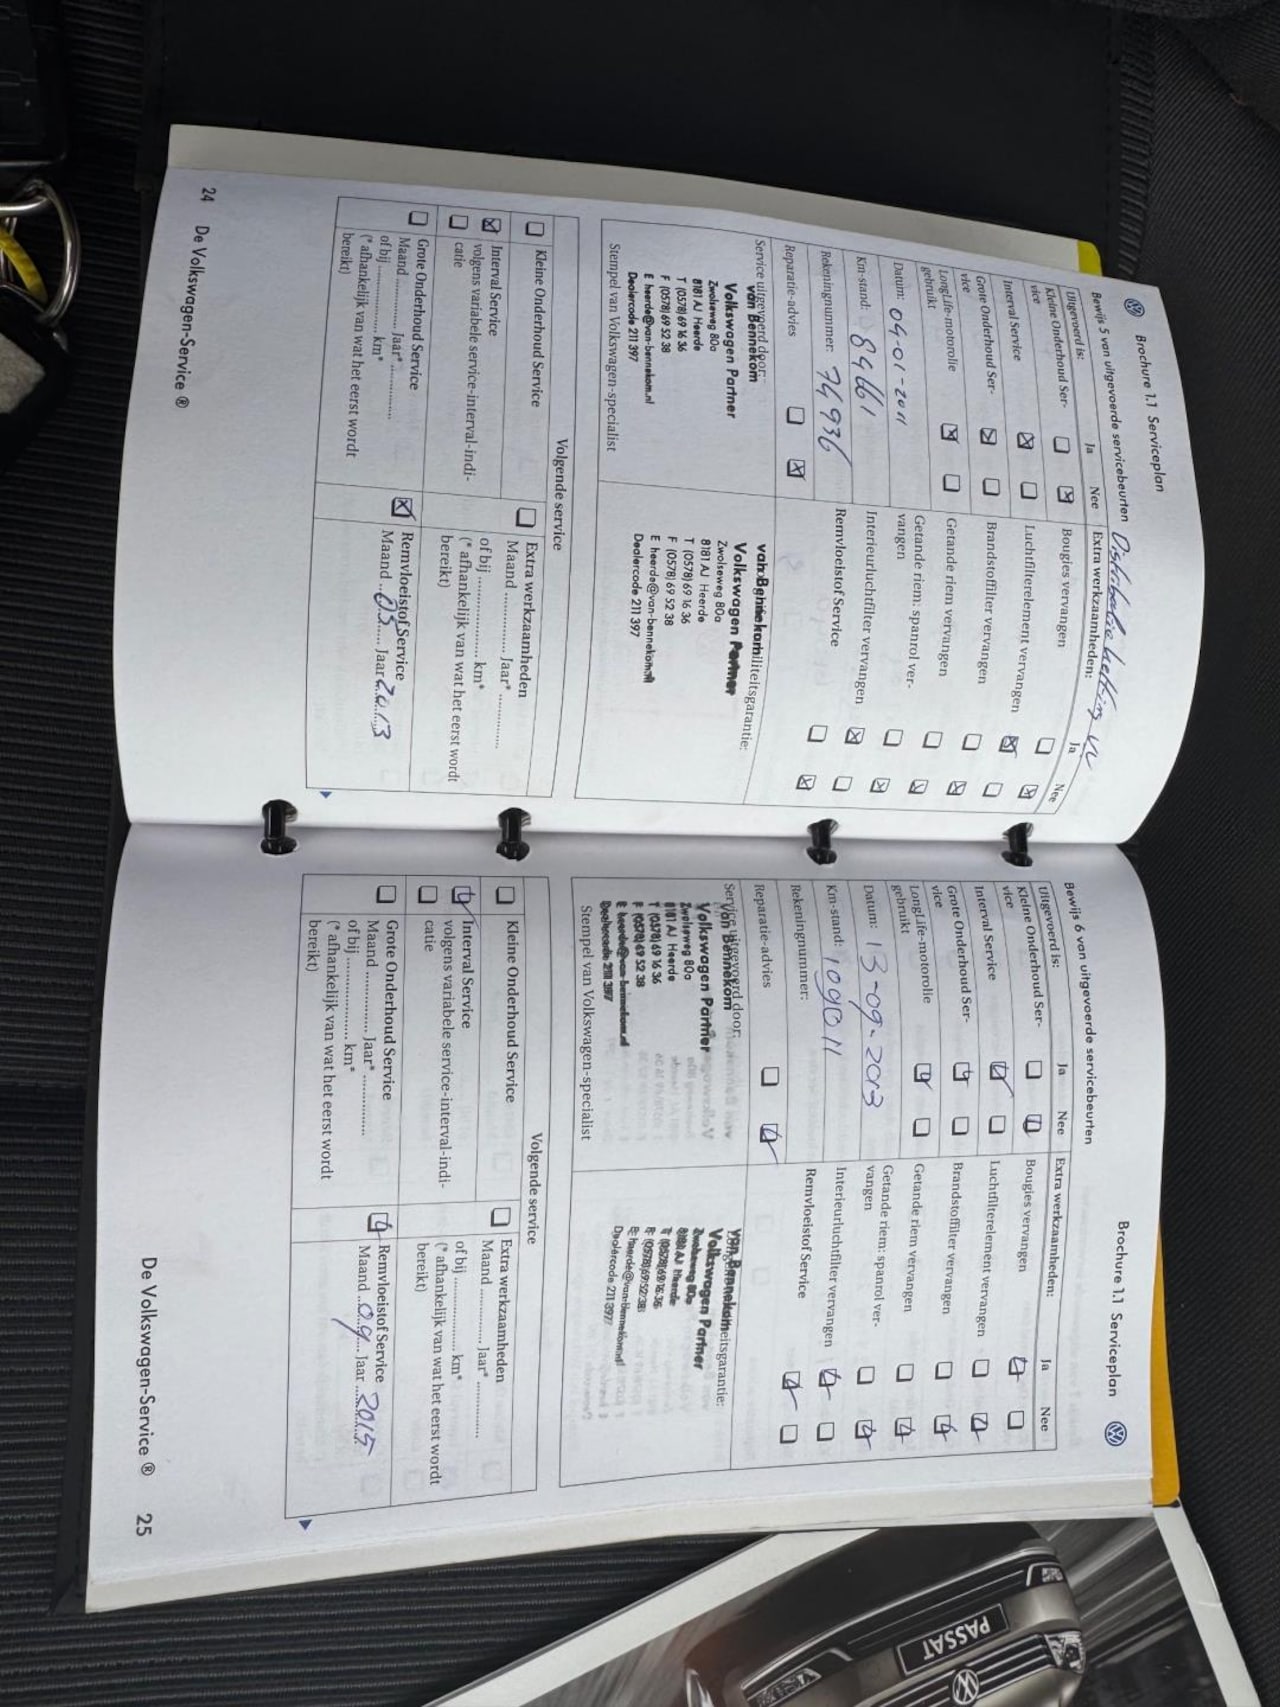 Brochure 1.1 Serviceplan
Bewijs 5 van uitgevoerde servicebeurten
Distributie ketting VV
Uitgevoerd is: Ja Nee
Kleine Onderhoud Ser-
vice
Interval Service
Grote Onderhoud Ser-
vice
LongLife-motorolie
gebruikt
Datum: 04-01-2011
Km-stand: 89661
Rekeningnummer: 74936
Reparatie-advies
Extra werkzaamheden: Ja Nee
Bougies vervangen
Luchtfilterelement vervangen
Brandstoffilter vervangen
Getande riem vervangen
Getande riem: spanrol ver-
vangen
Interieurluchtfilter vervangen
Remvloeistof Service
Service uitgevoerd door:
van Bennekom
Volkswagen Partner
Zwolseweg 80a
8181 AJ Heerde
T (0578) 69 16 36
F (0578) 69 52 38
E heerde@van-bennekom.nl
Dealercode 211 397
Stempel van Volkswagen-specialist
van Bennekom
Volkswagen Partner
Zwolseweg 80a
8181 AJ Heerde
T (0578) 69 16 36
F (0578) 69 52 38
E heerde@van-bennekom.nl
Dealercode 211 397
Volgende service
Kleine Onderhoud Service
Interval Service
volgens variabele service-interval-indi-
catie
Grote Onderhoud Service
Maand ............ Jaar* ............
of bij ............ km*
(* afhankelijk van wat het eerst wordt
bereikt)
Extra werkzaamheden
Maand ............ Jaar* ............
of bij ............ km*
(* afhankelijk van wat het eerst wordt
bereikt)
Remvloeistof Service
Maand ..05.... Jaar 2013
24 De Volkswagen-Service ®
Brochure 1.1 Serviceplan
Bewijs 6 van uitgevoerde servicebeurten
Uitgevoerd is: Ja Nee
Kleine Onderhoud Ser-
vice
Interval Service
Grote Onderhoud Ser-
vice
LongLife-motorolie
gebruikt
Datum: 13-09-2013
Km-stand: 109011
Rekeningnummer:
Reparatie-advies
Extra werkzaamheden: Ja Nee
Bougies vervangen
Luchtfilterelement vervangen
Brandstoffilter vervangen
Getande riem vervangen
Getande riem: spanrol ver-
vangen
Interieurluchtfilter vervangen
Remvloeistof Service
Service uitgevoerd door:
van Bennekom
Volkswagen Partner
Zwolseweg 80a
8181 AJ Heerde
T (0578) 69 16 36
F (0578) 69 52 38
E heerde@van-bennekom.nl
Dealercode 211 397
Stempel van Volkswagen-specialist
van Bennekom
Volkswagen Partner
Zwolseweg 80a
8181 AJ Heerde
T (0578) 69 16 36
F (0578) 69 52 38
E heerde@van-bennekom.nl
Dealercode 211 397
Volgende service
Kleine Onderhoud Service
Interval Service
volgens variabele service-interval-indi-
catie
Grote Onderhoud Service
Maand ............ Jaar* ............
of bij ............ km*
(* afhankelijk van wat het eerst wordt
bereikt)
Extra werkzaamheden
Maand ............ Jaar* ............
of bij ............ km*
(* afhankelijk van wat het eerst wordt
bereikt)
Remvloeistof Service
Maand ..09.... Jaar ..2015
De Volkswagen-Service ® 25
PASSAT